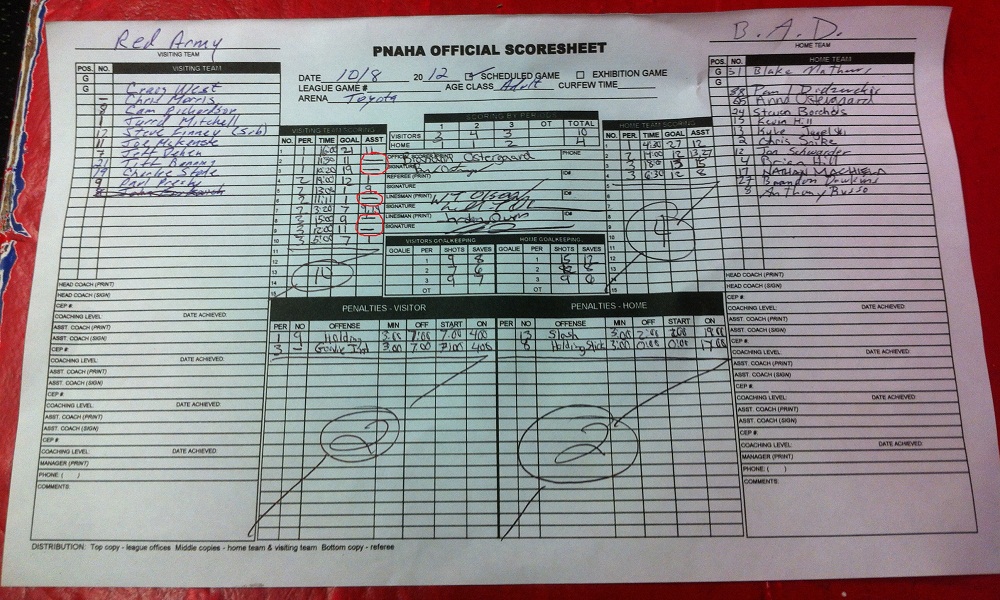 Red Army
VISITING TEAM
PNAHA OFFICIAL SCORESHEET
B. A. D.
HOME TEAM
DATE 10/8 2012 SCHEDULED GAME EXHIBITION GAME
LEAGUE GAME # AGE CLASS Adult CURFEW TIME
ARENA Toyota
POS. NO. VISITING TEAM
G
G
Craig West
Chris Morris
8 Cam Richardson
Jarred Mitchell
12 Steve Finney (Sub)
11 Joe McKenzie
7 Jeff
21 Jeff
19 Charlie Stole
9
SCORING BY PERIODS
1 2 3 OT TOTAL
VISITORS 3 4 3 10
HOME 1 1 2 4
VISITING TEAM SCORING
NO. PER. TIME GOAL ASST
1 1 16:00 21 11
2 1 11:50 11 —
3 1 10:20 19 —
4 2 19:00 12 1
5 2 13:04 9
6 2 11:11 1 —
7 2 3:20 7
8 3 15:00 9 —
9 3 12:00 11 —
10 3 5:00 7 1
11
12
13
14
10
Ostergaard PHONE
SIGNATURE
REFEREE (PRINT) ID#
SIGNATURE
LINESMAN (PRINT) ID#
SIGNATURE
LINESMAN (PRINT) ID#
SIGNATURE
HOME TEAM SCORING
NO. PER. TIME GOAL ASST
1 1 4:30 27 12
2 2 14:00 12 13,27
3 3 13 15
4 3 6:30 12 8
4
VISITORS GOALKEEPING
GOALIE PER SHOTS SAVES
1 9 8
2 7 6
3 9 7
OT
HOME GOALKEEPING
GOALIE PER SHOTS SAVES
1 15 12
2 12 8
3 9 6
OT
POS. NO. HOME TEAM
G 31 Blake Mathews
G
88 Pam Didzwekis
65 Anna Ostergaard
24 Steven Borchols
15 Kevin Hill
13 Kyle
2 Chris Snike
12 Jon Schwaider
4 Brien Hill
17 NATHAN MACHIELA
27 Brandon Hawkins
8 Anthony Russo
HEAD COACH (PRINT)
HEAD COACH (SIGN)
CEP #:
COACHING LEVEL: DATE ACHIEVED:
ASST. COACH (PRINT)
ASST. COACH (SIGN)
CEP #:
COACHING LEVEL: DATE ACHIEVED:
ASST. COACH (PRINT)
ASST. COACH (SIGN)
CEP #:
COACHING LEVEL: DATE ACHIEVED:
ASST. COACH (PRINT)
ASST. COACH (SIGN)
CEP #:
COACHING LEVEL: DATE ACHIEVED:
MANAGER (PRINT)
PHONE: ( )
COMMENTS:
PENALTIES - VISITOR
PER NO OFFENSE MIN OFF START ON
1 9 Holding 3:00 7:00 7:00 4:00
3 — Goalie Int 3:00 7:00 7:00 4:00
2
PENALTIES - HOME
PER NO. OFFENSE MIN OFF START ON
13 Slash 3:00 2:00 2:00 19:00
8 Holding Stick 3:00 0:00 0:00 17:00
2
HEAD COACH (PRINT)
HEAD COACH (SIGN)
CEP #:
COACHING LEVEL: DATE ACHIEVED:
ASST. COACH (PRINT)
ASST. COACH (SIGN)
CEP #:
COACHING LEVEL: DATE ACHIEVED:
ASST. COACH (PRINT)
ASST. COACH (SIGN)
CEP #:
COACHING LEVEL: DATE ACHIEVED:
ASST. COACH (PRINT)
ASST. COACH (SIGN)
CEP #:
COACHING LEVEL: DATE ACHIEVED:
MANAGER (PRINT)
PHONE: ( )
COMMENTS:
DISTRIBUTION: Top copy - league offices Middle copies - home team & visiting team Bottom copy - referee